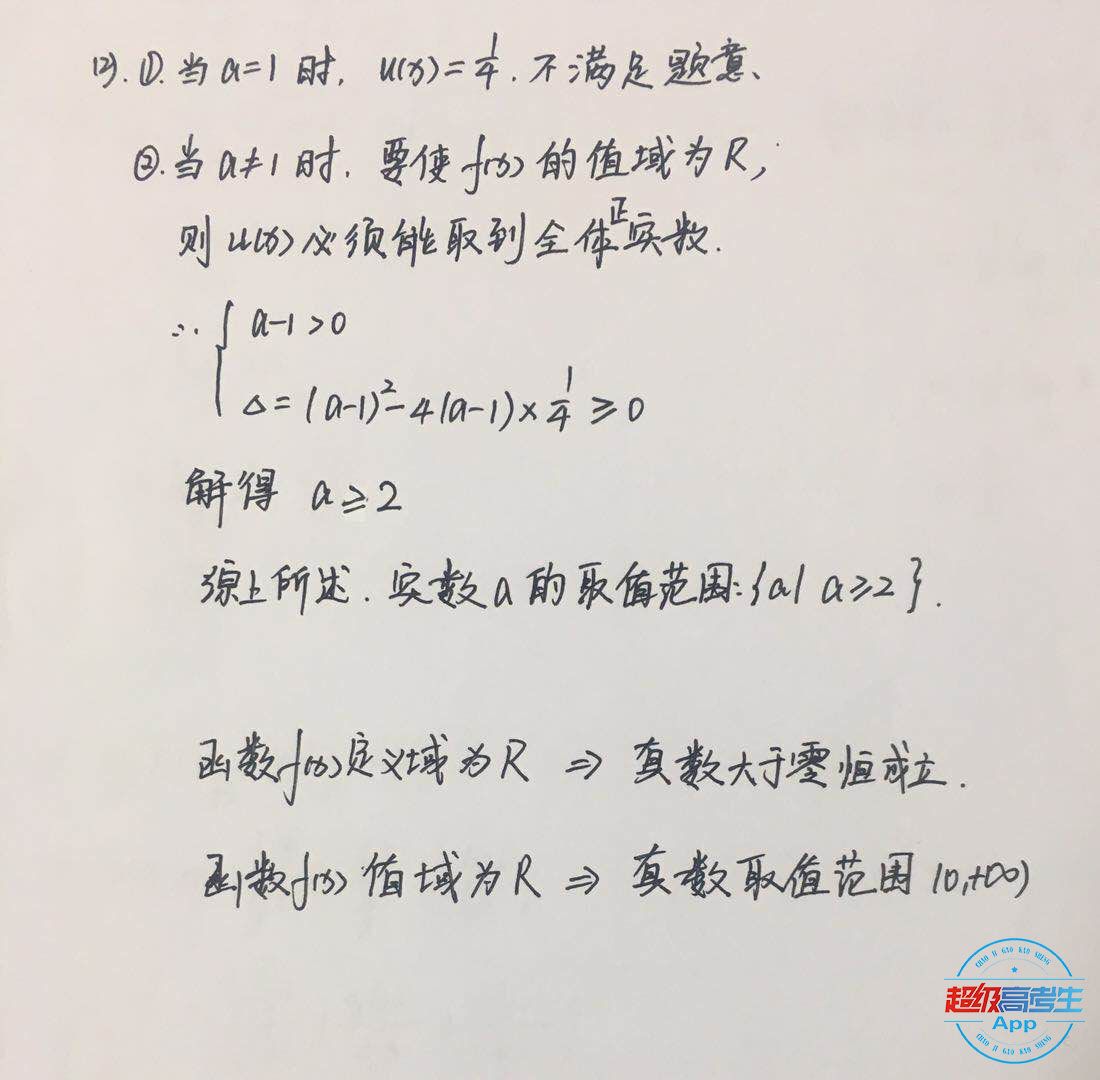 (2). ①. 当 a=1 时, u(x)=1/4. 不满足题意、
②. 当 a≠1 时. 要使 f(x) 的值域为 R,
则 u(x) 必须能取到全体正实数.
∴ { a-1>0
Δ=(a-1)²-4(a-1)×1/4≥0
解得 a≥2
综上所述. 实数 a 的取值范围:{a| a≥2}.
函数f(x)定义域为R ⇒ 真数大于零恒成立.
函数f(x) 值域为R ⇒ 真数取值范围(0,+∞)
CHAO JI GAO KAO SHENG
超级高考生
App
CHAO JI GAO KAO SHENG